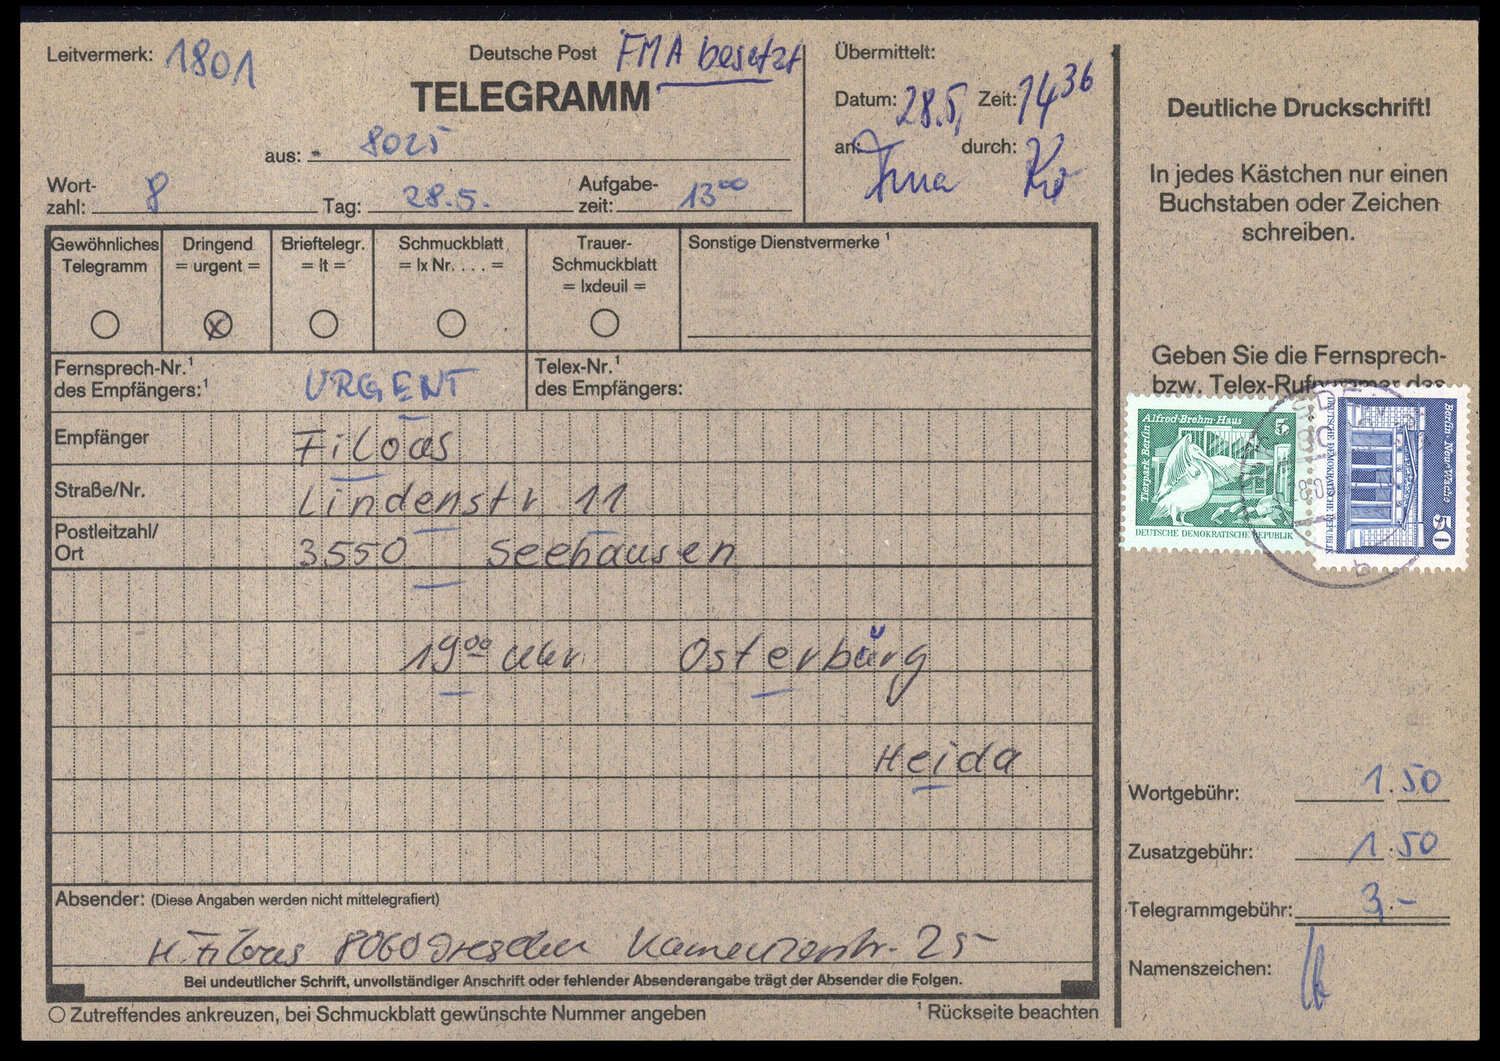 Leitvermerk: 1801
Deutsche Post FMA besetzt
TELEGRAMM
aus: 8025
Wort-
zahl: 8 Tag: 28.5. Aufgabe-
zeit: 13⁰⁰
Übermittelt:
Datum: 28.5. Zeit: 14³⁶
an: durch:
Gewöhnliches
Telegramm
Dringend
= urgent =
Brieftelegr.
= lt =
Schmuckblatt
= lx Nr. . . . =
Trauer-
Schmuckblatt
= lxdeuil =
Sonstige Dienstvermerke ¹
Fernsprech-Nr.¹
des Empfängers:¹
URGENT
Telex-Nr.¹
des Empfängers:
Empfänger Filoas
Straße/Nr. Lindenstr 11
Postleitzahl/
Ort 3550 Seehausen
19⁰⁰ Uhr Osterburg
Heida
Absender: (Diese Angaben werden nicht mittelegrafiert)
H. Filoas 8060 Dresden Kamenzerstr. 25
Bei undeutlicher Schrift, unvollständiger Anschrift oder fehlender Absenderangabe trägt der Absender die Folgen.
Zutreffendes ankreuzen, bei Schmuckblatt gewünschte Nummer angeben
¹ Rückseite beachten
Deutliche Druckschrift!
In jedes Kästchen nur einen
Buchstaben oder Zeichen
schreiben.
Geben Sie die Fernsprech-
bzw. Telex-Rufnummer des
Alfred-Brehm-Haus
Tierpark Berlin
DEUTSCHE DEMOKRATISCHE REPUBLIK
Berlin·Neue Wache
50
DEUTSCHE DEMOKRATISCHE REPUBLIK
Wortgebühr: 1.50
Zusatzgebühr: 1.50
Telegrammgebühr: 3,-
Namenszeichen: